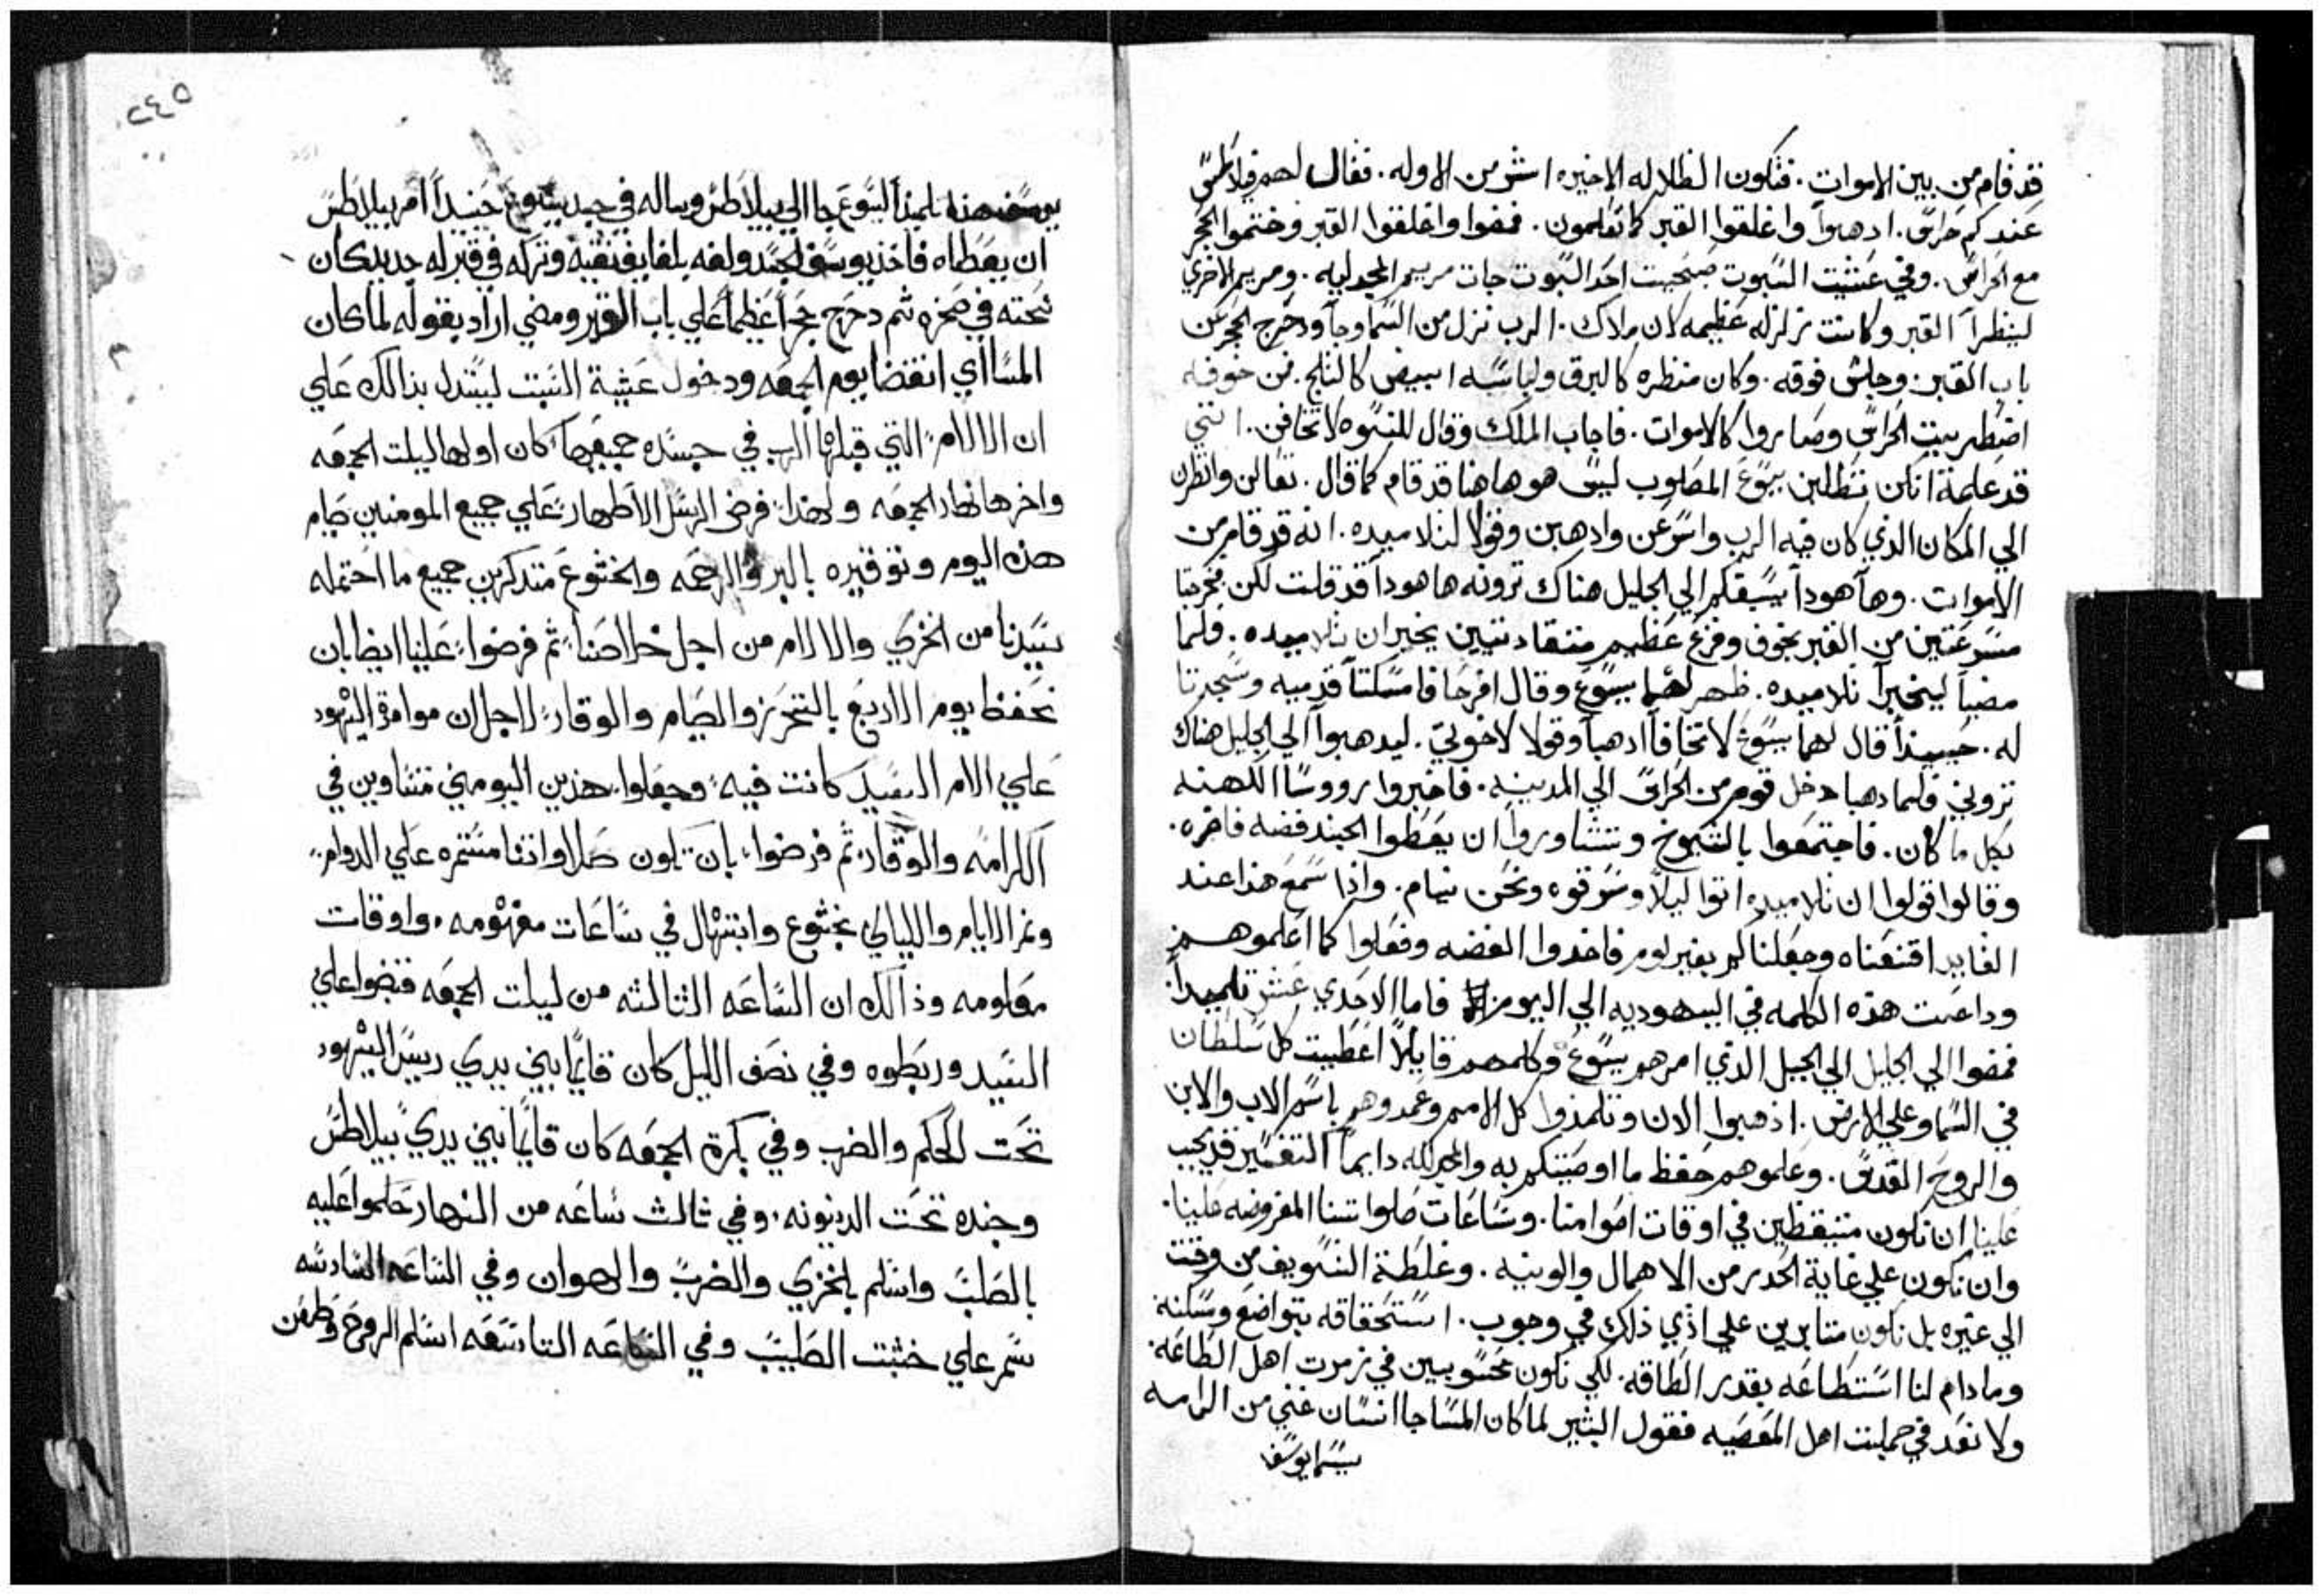 قد قام من بين الاموات. فتكون الظلاله الاخيره اشر من الاوله. فقال لهم فيلاطس
عندكم حراس. ادهبوا واغلقوا القبر كما تعلمون. فمضوا واغلقوا القبر وختموا الحجر
مع الحراس. وفي عشيت السبوت صبحيت احد السبوت جات مريم المجدليه. ومريم الاخري
لينظرا القبر وكانت زلزله عظيمه لان ملاك. الرب نزل من السما وجا ودحرج الحجر عن
باب القبر. وجلس فوقه. وكان منظره كالبرق ولباسه ابيض كالثلج. فمن خوفه
اضطربيت الحراس وصاروا كالاموات. فاجاب الملك وقال للنسوه لا تخافن. انني
قد علمة انكن تطلبن يسوع المصلوب ليس هو هاهنا قد قام كما قال. تعالن وانظرن
الي المكان الدي كان فيه الرب واسرعن وادهبن وقولا لتلاميده. انه قد قام من
الاموات. وها هودا يسبقكم الي الجليل هناك ترونه ها هودا قد قلت لكن فخرجتا
مسرعتين من القبر بخوف وفزع عظيم متقادتين يخبران تلاميده. فلما
مضيا ليخبرا تلاميده. ظهر لهما يسوع وقال افرحا فامسكتا قدميه وسجدتا
له. حينيدا قال لهما يسوع لا تخافا ادهبا وقولا لاخوتي. ليدهبوا الي الجليل هناك
تروني فلما دهبا دخل قوم من الحراس الي المدينه. فاخبروا رووسا الكهنه
بكل ما كان. فاجتمعوا بالشيوخ وتشاوروا ان يعطوا الجند فضه فاخره.
وقالوا قولوا ان تلاميده اتوا ليلا وسرقوه ونحن نيام. واذا سمع هذا عند
القايد اقنعناه وجعلناكم بغير لوم فاخدوا الفضه وفعلوا كما اعلموهم
وداعت هذه الكلمه في اليهوديه الي اليوم فاما الاحدي عشر تلميدا.
فمضوا الي الجليل الي الجبل الذي امرهم يسوع وكلمهم قايلا اعطيت كل سلطان
في السما وعلي الارض. اذهبوا الان وتلمذوا كل الامم وعمدوهم باسم الاب والابن
والروح القدس. وعلموهم حفظ ما اوصيتكم به والمجد لله دايما التفسير قد يجب
علينا ان نكون متيقظين في اوقات اصوامنا. وساعات صلواتنا المفروضه علينا.
وان نكون علي غاية الحدر من الاهمال والونيه. وغلطة التسويف من وقت
الي غيره بل نكون متابرين علي اذي ذلك في وجوب. استحقاقه بتواضع وسكنه
وما دام لنا استطاعه بقدر الطاقه. لكي نكون محسوبين في زمرت اهل الطاعه
ولا نعد في جملت اهل المعصيه فقول البشير لما كان المسا جا انسان غني من الرامه
يسما يوسف
٢٤٥
يوسف هذا تلميذ اليسوع جا الي بيلاطس وساله في جسد يسوع حينيدا امر بيلاطس
ان يعطاه فاخد يوسف الجسد ولفه بلفايف نقيه وتركه في قبر له جديد كان
نحته في صخره ثم دحرج حجرا عظيما علي باب القبر ومضي اراد بقوله لما كان
المسا اي انقضا يوم الجمعه ودخول عشية السبت ليستدل بذالك علي
ان الالام التي قبلها الرب في جسده جميعها كان اولها ليلت الجمعه
واخرها نهار الجمعه ولهذا فرض الرسل الاطهار علي جميع المومنين صيام
هذه اليوم وتوقيره بالبر والرحمه والخشوع متدكرين جميع ما احتمله
سيدنا من الخزي والالام من اجل خلاصنا ثم فرضوا علينا ايضا بان
نحفظ يوم الاربع بالتحرز والصيام والوقار لاجل ان موامرة اليهود
علي الام السيد كانت فيه وجعلوا هذين اليومين متساوين في
الكرامه والوقار. ثم فرضوا بان تكون صلاواتنا مستمره علي الدوام
ومر الايام والليالي بخشوع وابتهال في ساعات مفهومه. واوقات
معلومه وذالك ان الساعه الثالثه من ليلت الجمعه قبضوا علي
السيد وربطوه وفي نصف الليل كان قايما بين يدي رييس اليهود
تحت الحكم والضرب وفي بكرة الجمعه كان قايما بين يدي بيلاطس
وجنده تحت الدينونه. وفي ثالث ساعه من النهار حكموا عليه
بالصلب واسلم بالخزي والضرب والهوان وفي الساعه السادسه
سمر علي خشبت الصليب وفي الساعه التاسعه اسلم الروح وطعن